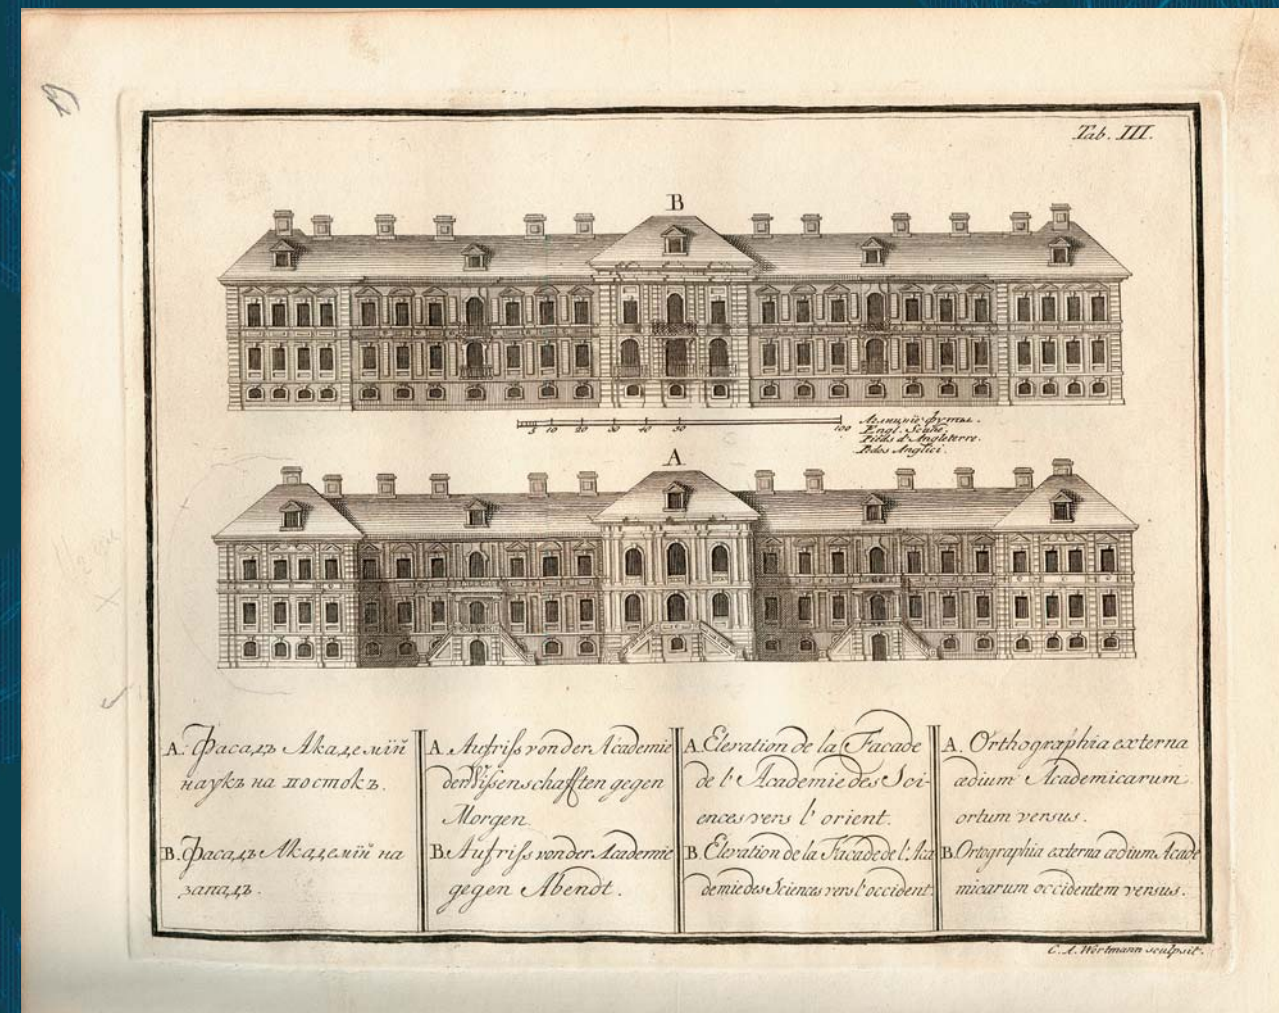 Tab. III.
B
5 10 20 30 40 50 100
футы.
Engl. Schue.
Pieds d'Angleterre.
Pedes Anglici.
A
A. Фасадъ Академїй
наукъ на востокъ.
B. Фасадъ Академїй на
западъ.
A. Aufriss von der Academie
der Wissenschafften gegen
Morgen.
B. Aufriss von der Academie
gegen Abendt.
A. Elevation de la Facade
de l'Academie des Sci-
ences vers l'orient.
B. Elevation de la Facade de l'Aca
demie des Sciences vers l'occident.
A. Orthographia externa
ædium Academicarum
ortum versus.
B. Ortographia externa ædium Acade
micarum occidentem versus.
C. A. Wortmann sculpsit.